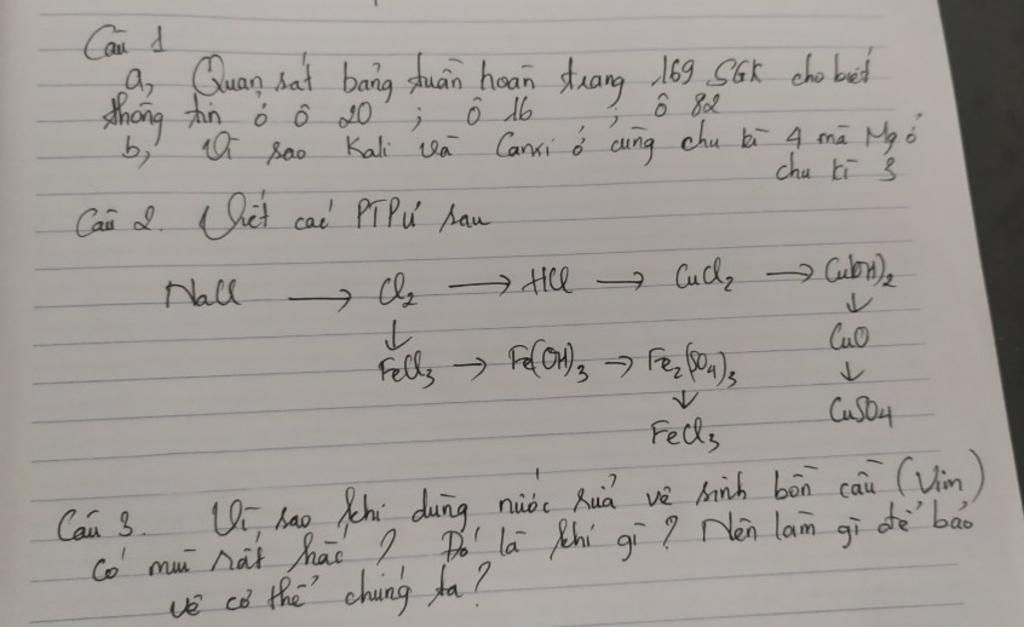 Câu 1
a, Quan sát bảng tuần hoàn trang 169 SGK cho biết
thông tin ở ô 20 ; ô 16 ; ô 82
b, Vì sao Kali và Canxi ở cùng chu kì 4 mà Mg ở
chu kì 3
Câu 2. Viết các PTPƯ sau
NaCl → Cl₂ → HCl → CuCl₂ → Cu(OH)₂
↓ ↓
FeCl₃ → Fe(OH)₃ → Fe₂(SO₄)₃ CuO
↓ ↓
FeCl₃ CuSO₄
Câu 3. Vì sao khi dùng nước rửa vệ sinh bồn cầu (Vim)
có mùi rất hắc ? Đó là khí gì ? Nên làm gì để bảo
vệ cơ thể chúng ta ?